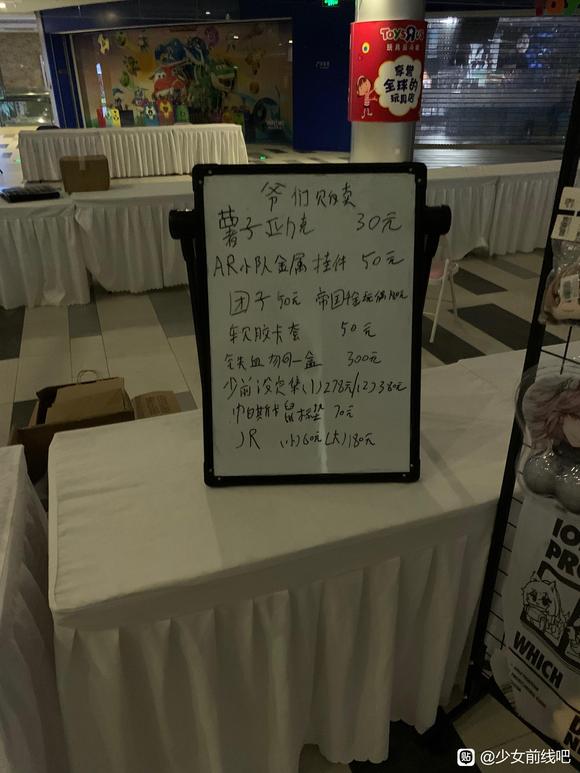 TOYSRUS
玩具反斗城
享誉
全球的
玩具店
爷们贩卖
薯子亚力克 30元
AR小队金属挂件 50元
团子 50元 帝国
软胶卡套 50元
铁血 一盒 300元
少前设定集(1)278元/(2)380元
帕斯卡鼠标垫 70元
JR (小)60元 (大)180元
WHICH
@少女前线吧